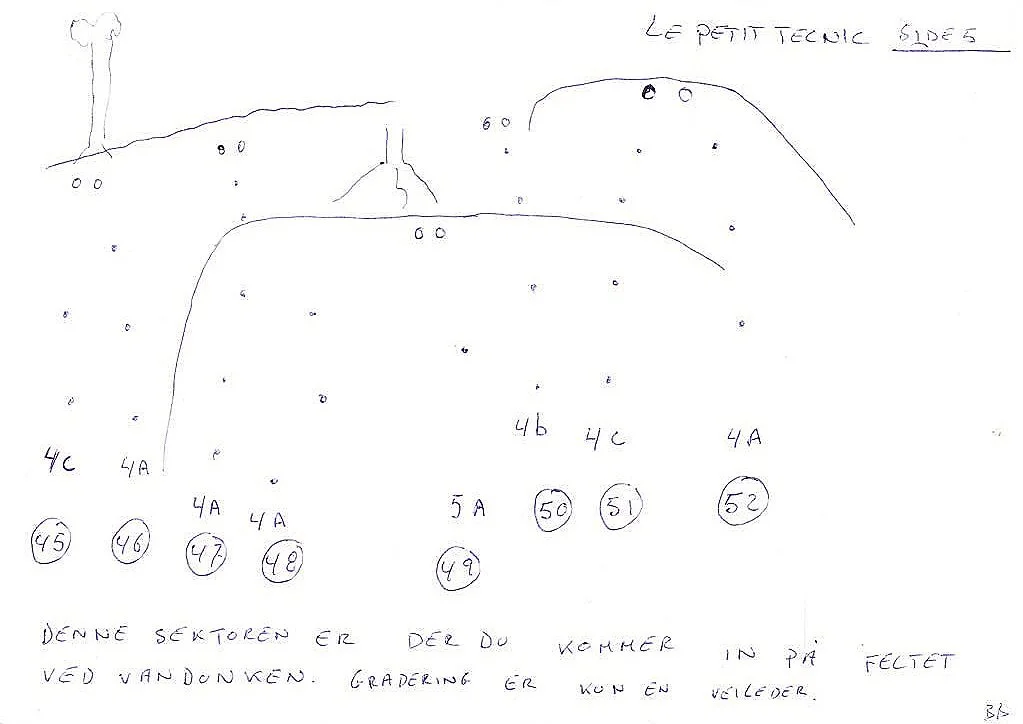 LE PETIT TECNIC SIDE 5
4C
4A
4A
4A
5A
4b
4C
4A
45
46
47
48
49
50
51
52
DENNE SEKTOREN ER DER DU KOMMER IN PÅ FELTET
VED VANDUNKEN. GRADERING ER KUN EN VEILEDER.